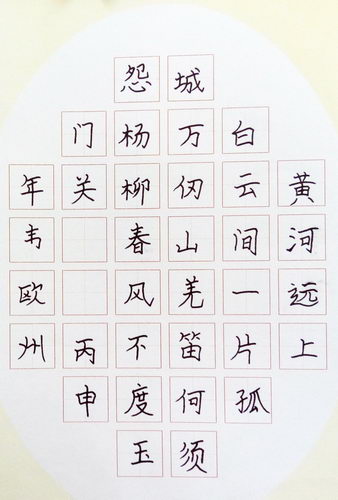 黄河远上
白云间一片孤
城万仞山羌笛何须
怨杨柳春风不度玉
门关 丙申
年韦欧州